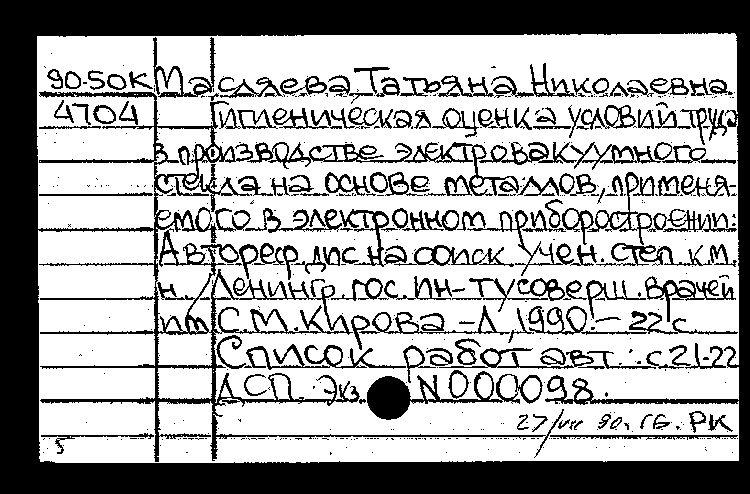 90-50К Масляева Татьяна Николаевна
4704 Гигиеническая оценка условий труда
в производстве электровакуумного
стекла на основе металлов, применя-
емого в электронном приборостроении:
Автореф. дис на соиск учен. степ к.м.
н. / Ленингр. гос. ин-т усоверш. врачей
им С.М. Кирова -Л, 1990. - 22 с
Список работ авт.: с. 21-22
ДСП. Экз. N 000098.
27/VII 90. ГБ. РК
5